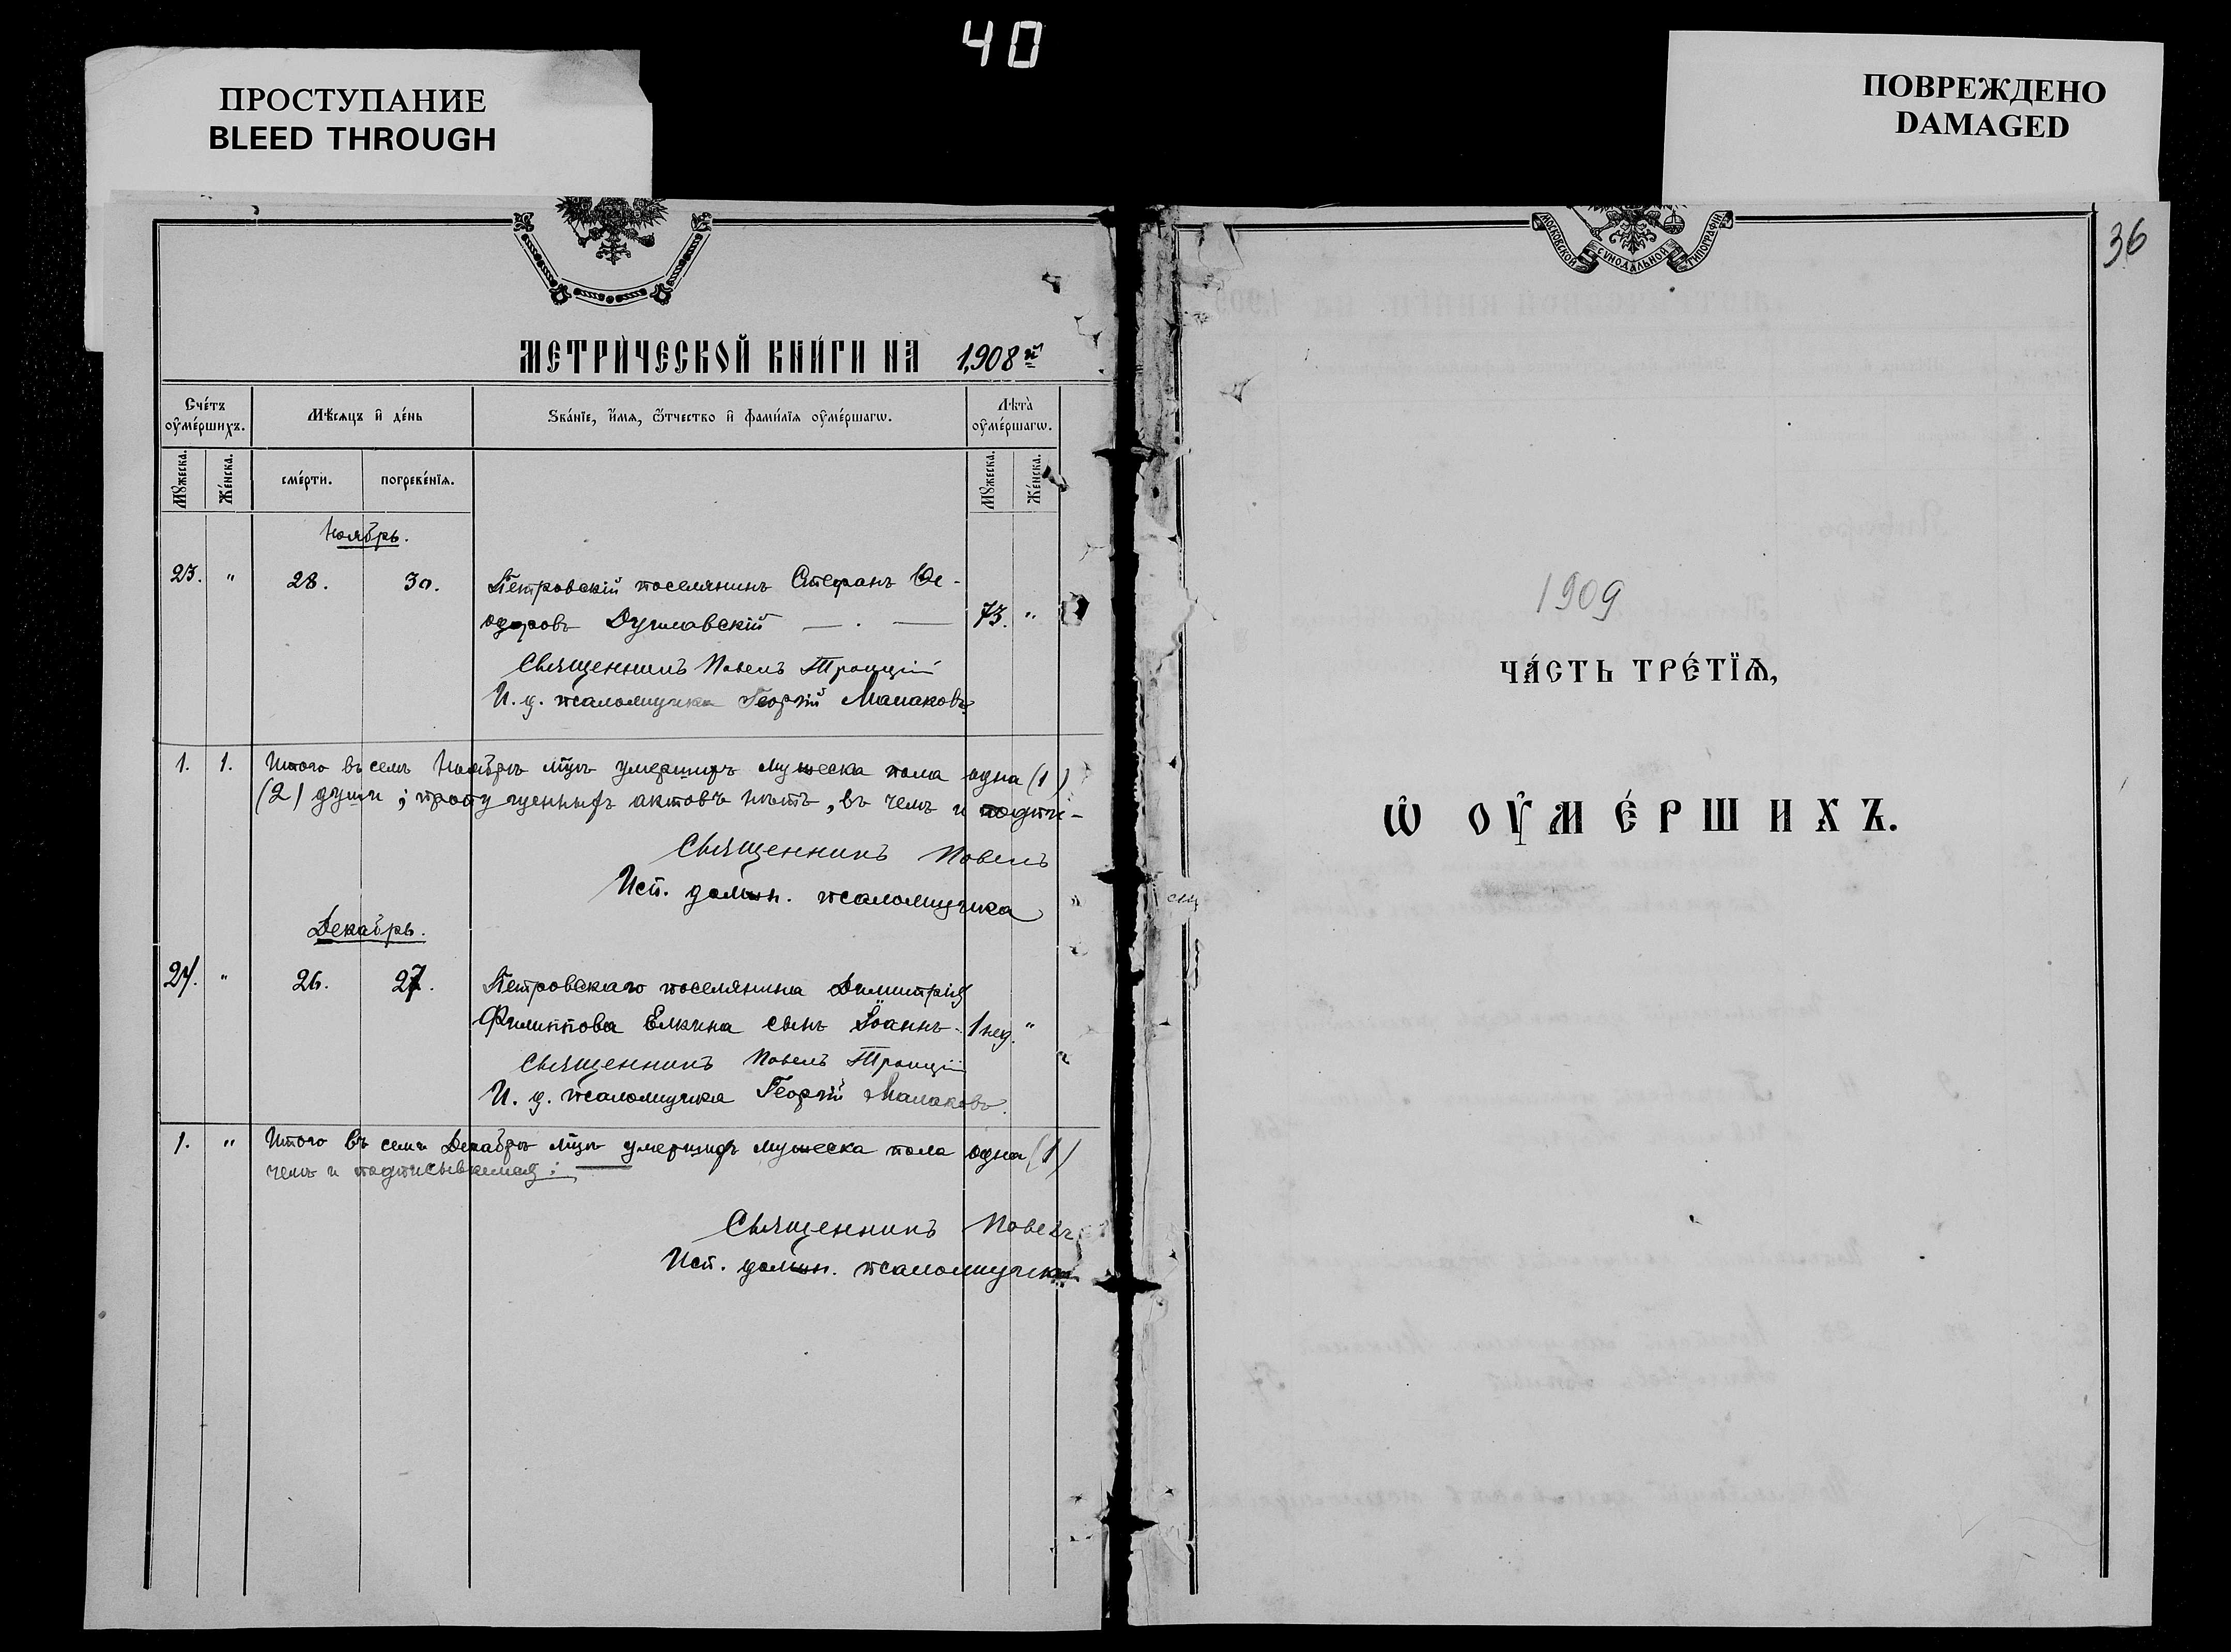 40
ПРОСТУПАНИЕ
BLEED THROUGH
ПОВРЕЖДЕНО
DAMAGED
МЕТРИ́ЧЕСКОЙ КНИ́ГИ НА 1908 й
Сче́тъ оу҆ме́ршихъ.
Мѣ́сяцъ и҆ де́нь
Ѕва́нїе, и҆́мѧ, ѻ҆́тчество и҆ фами́лїѧ оу҆ме́ршагѡ.
Лѣ́та оу҆ме́ршагѡ.
Мꙋжеска.
Же́нска.
сме́рти.
погребе́нїѧ.
Мꙋжеска.
Же́нска.
Ноябрь.
23. " 28. 30. Петровскій поселянинъ Стефанъ Ѳе-
одоровъ 73. "
Священникъ Павелъ Троицкій
И. д. псаломщика Георгій Малаковъ
1. 1. Итого въ семъ Ноябрѣ мцѣ умершихъ мужеска пола одна (1)
(2) души; пропущенныхъ актовъ нѣтъ, въ чемъ и подпи-
Священникъ Павелъ
Исп. должн. псаломщика
Декабрь.
24. " 26. 27. Петровскаго поселянина Димитрія
Филиппова Елкина сынъ Іоаннъ 1 нед. "
Священникъ Павелъ Троицкій
И. д. псаломщика Георгій Малаковъ.
1. " Итого въ семъ Декабрѣ мцѣ умершихъ мужеска пола одна (1)
чемъ и подписываемся:
Священникъ Павелъ
Исп. должн. псаломщика
МОСКОВСКОЙ СѴНОДАЛЬНОЙ ТИПОГРАФІИ
36
1909
ЧА́СТЬ ТРЕ́ТЇѦ,
Ѡ҆ ОУ҆МЕ́РШИХЪ.